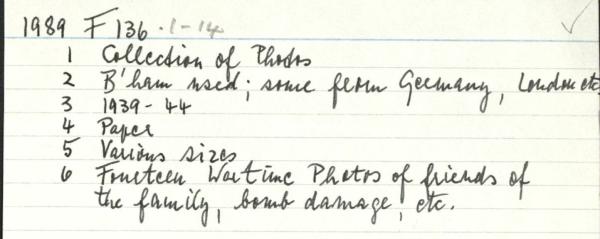 1989 F 136 .1-14
1 Collection of Photos
2 B'ham used; some from Germany, London etc
3 1939-44
4 Paper
5 Various sizes
6 Fourteen Wartime Photos of friends of
the family, bomb damage, etc.